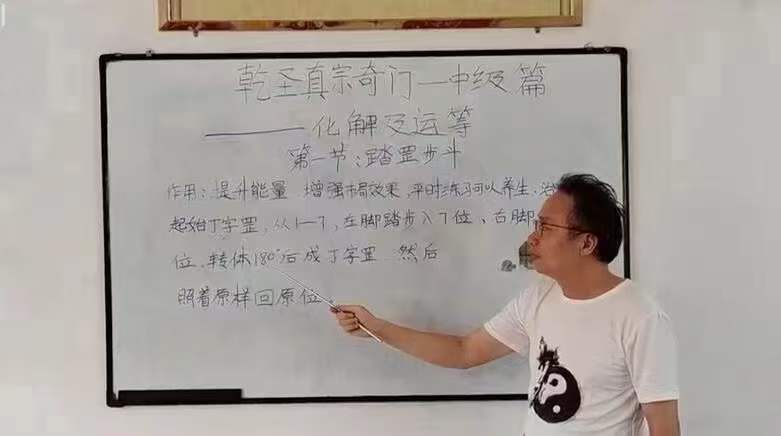 乾圣真宗奇门一中级篇
———化解及运筹
第一节：踏罡步斗
作用：提升能量 增强布局效果，平时练习可以养生、治
起始丁字罡，从1—7，左脚踏步入7位，右脚
位、转体180°后成丁字罡 然后
照着原样回原位。